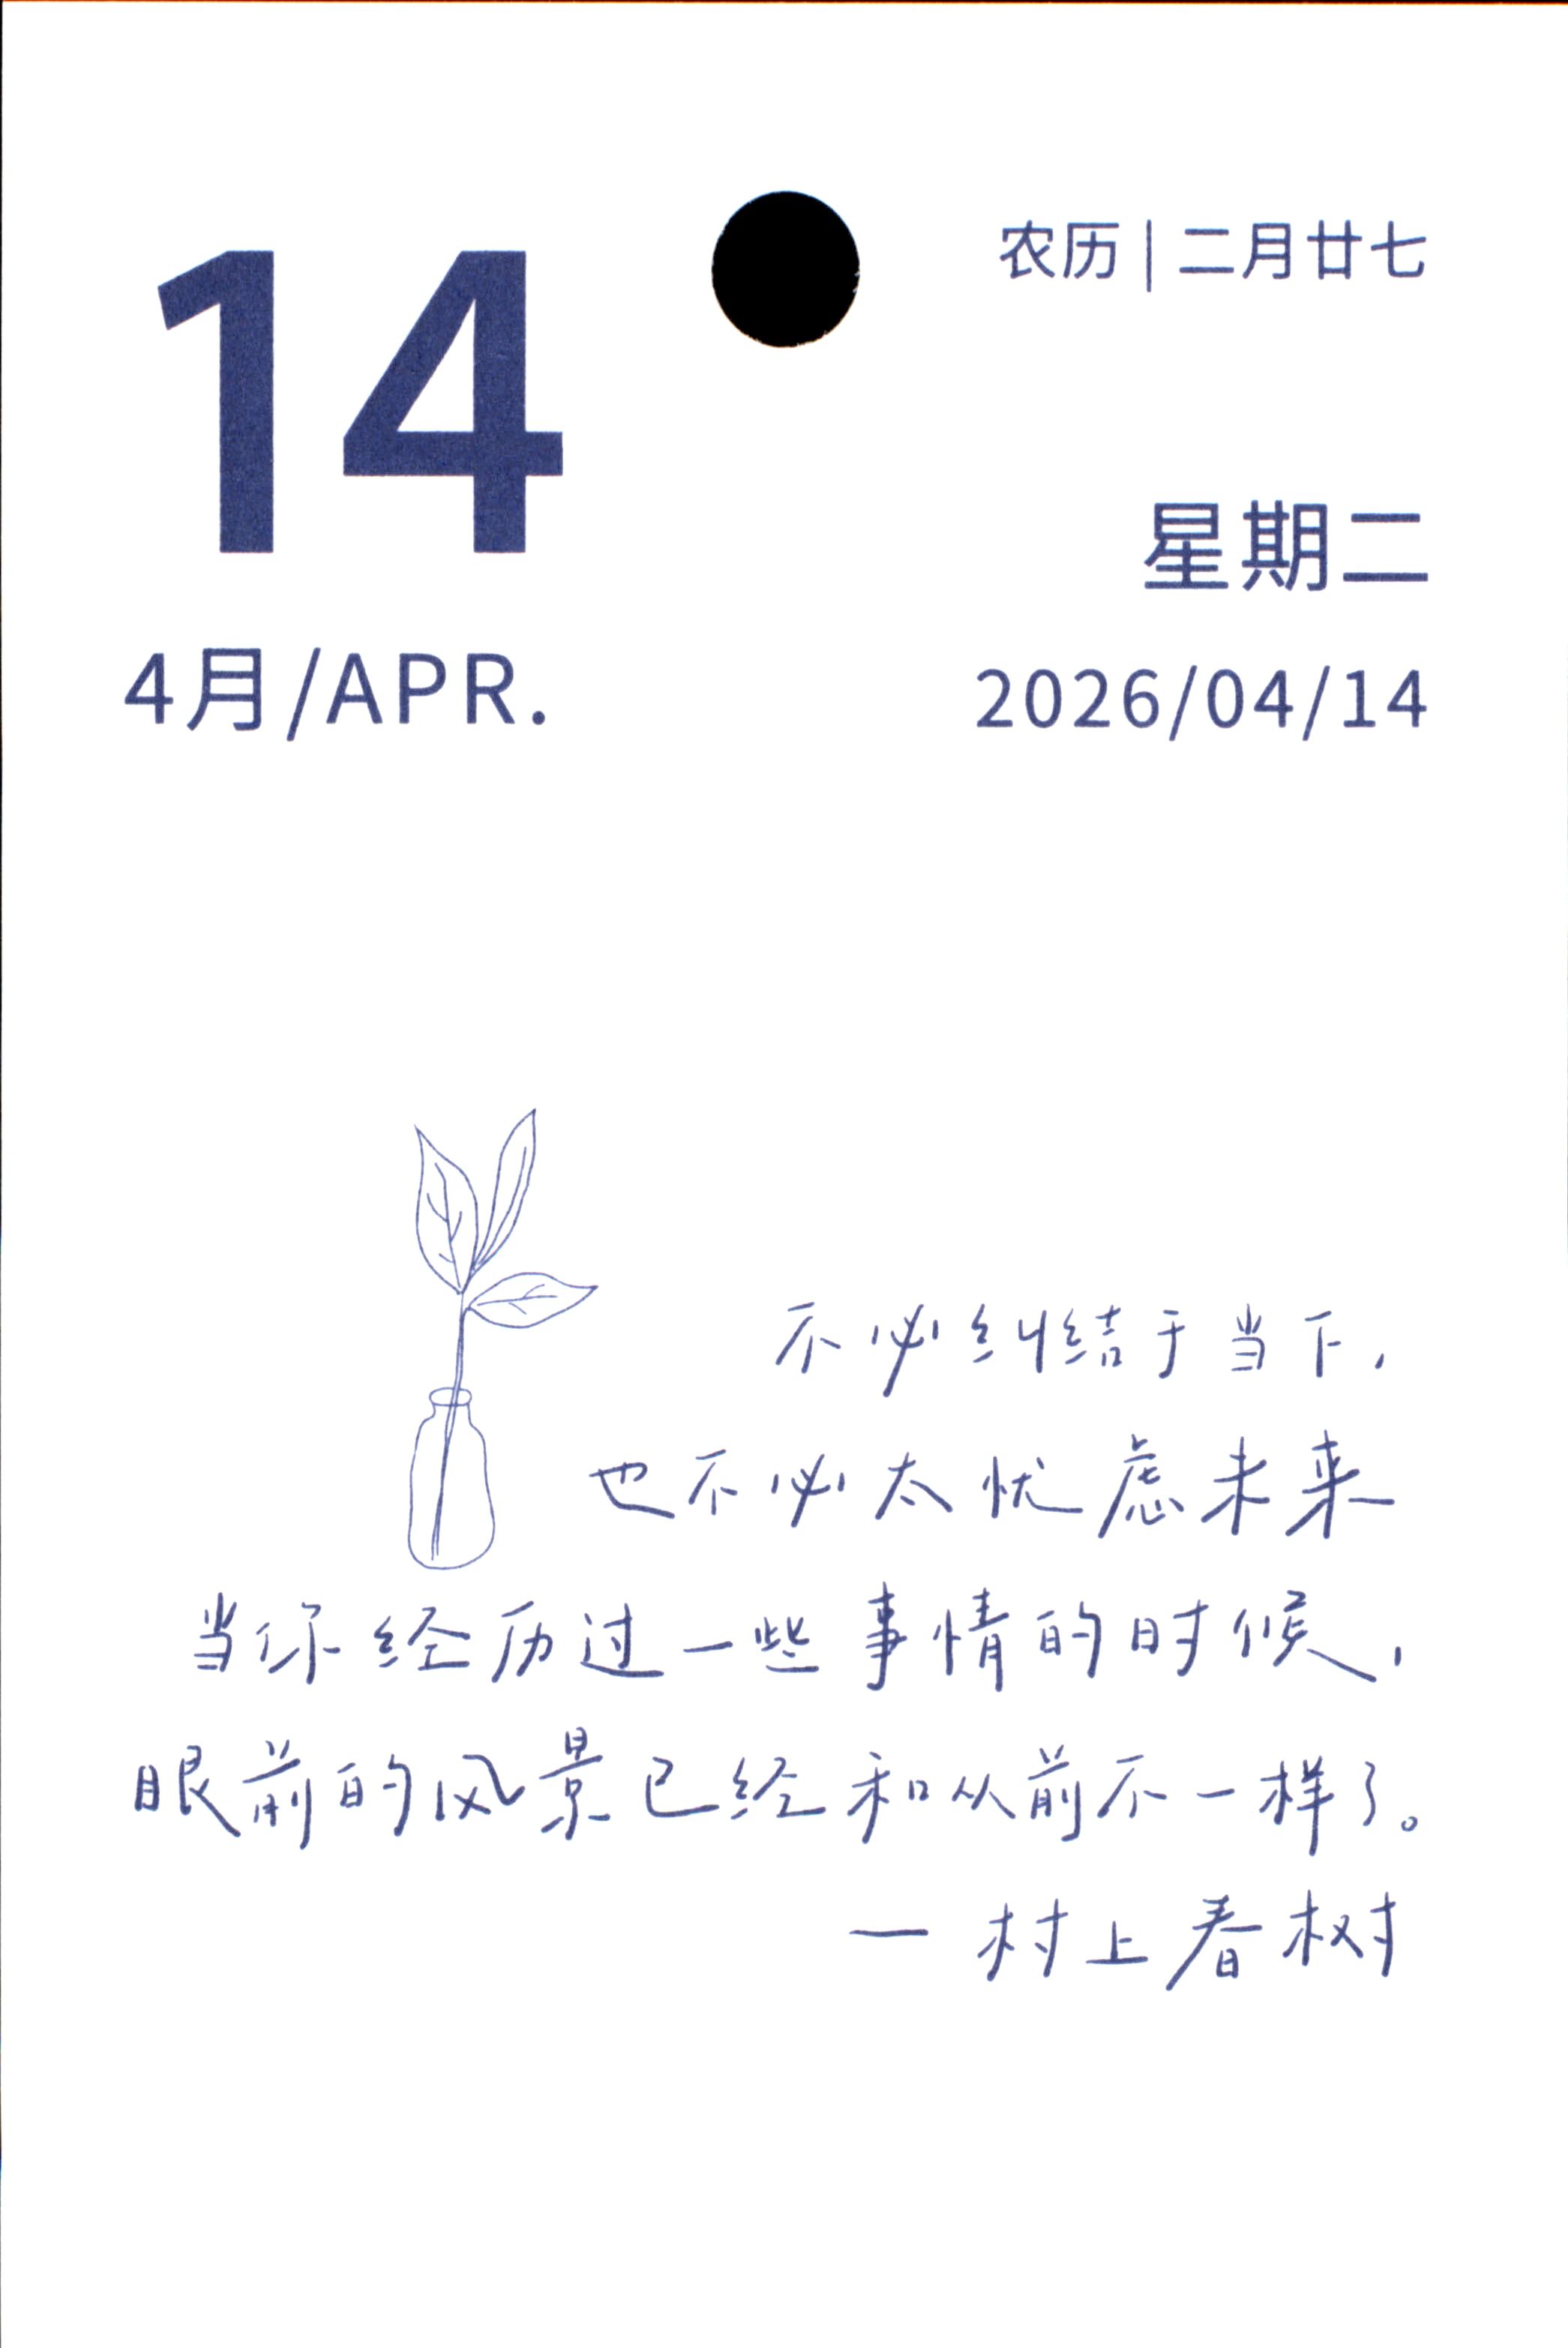 14
农历|二月廿七
星期二
4月/APR.
2026/04/14
不必纠结于当下，
也不必太忧虑未来
当你经历过一些事情的时候，
眼前的风景已经和从前不一样了。
— 村上春树